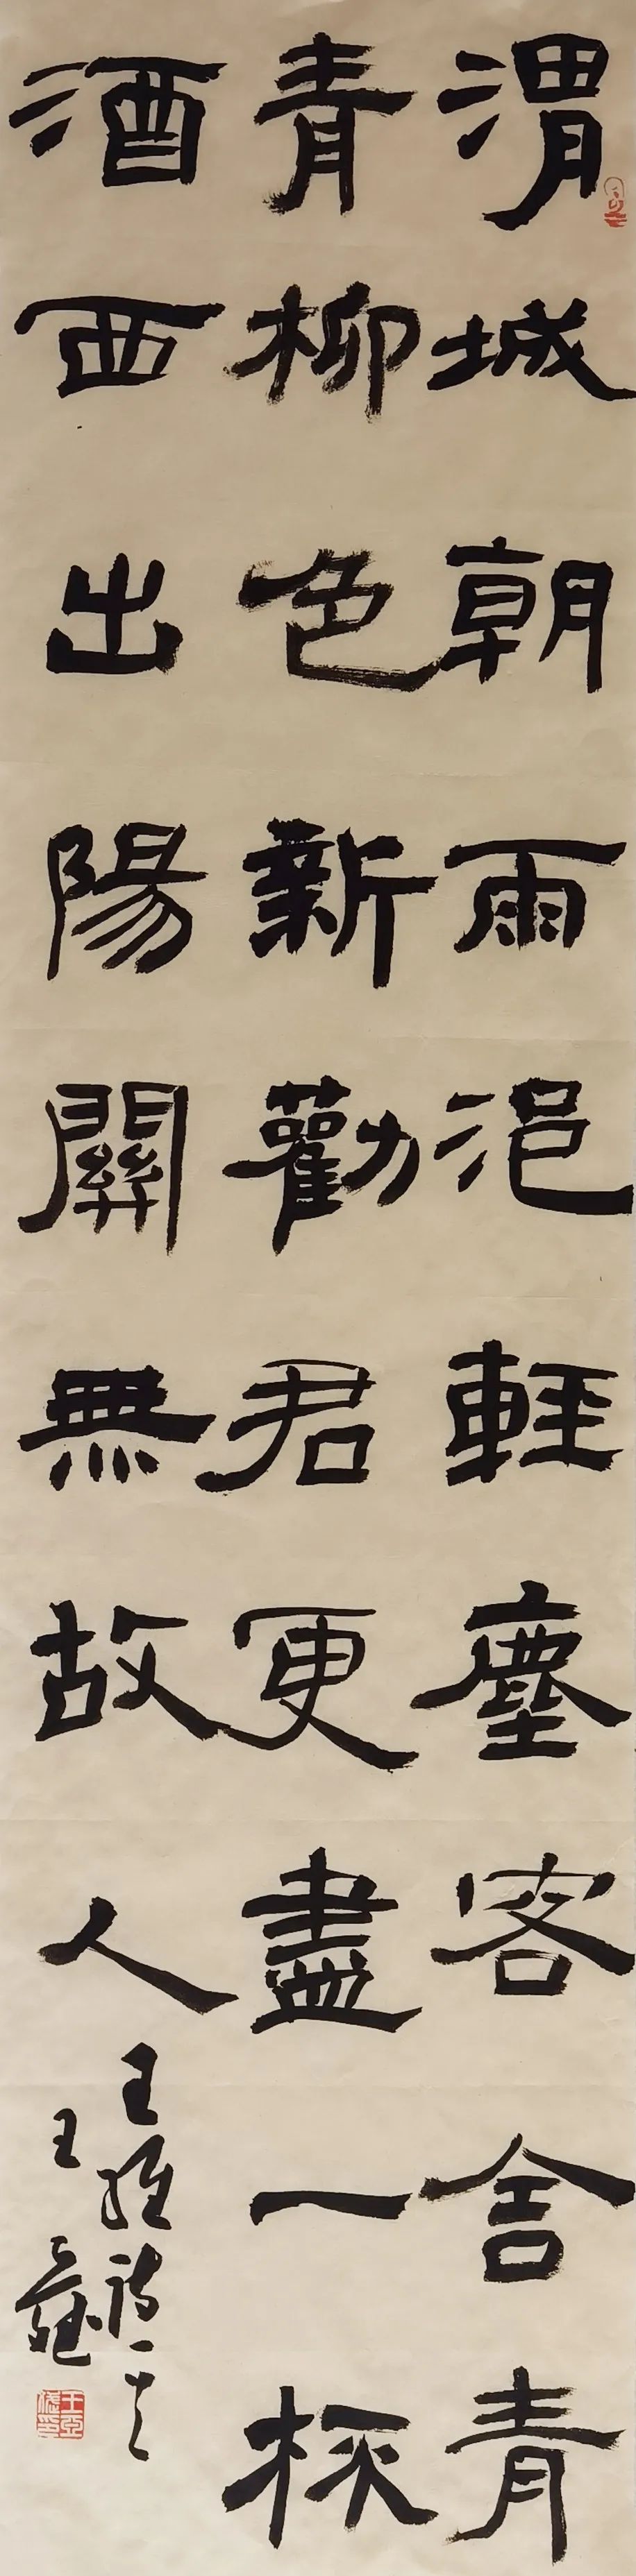 渭城朝雨浥輕塵客舍青
青柳色新勸君更盡一桮
酒西出陽關無故人
王維詩一首
王